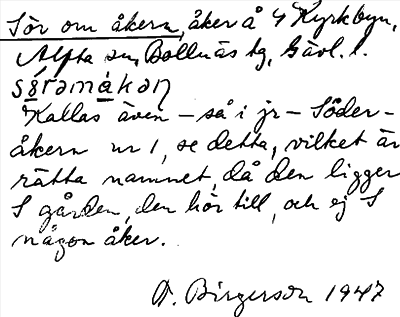 Sör om åkern, åker å 4 Kyrkbyn,
Alfta sn, Bollnäs tg, Gävl. l.
Kallas även – så i jr – Söder-
åkern nr 1, se detta, vilket är
rätta namnet då den ligger
S gården, den hör till, och ej S
någon åker.
O. Birgerson 1947